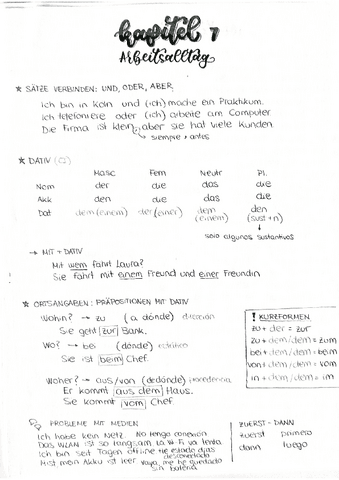 Kapitel 7
Arbeitsalltag
* SÄTZE VERBINDEN: UND, ODER, ABER,
Ich bin in Köln und (ich) mache ein Praktikum.
Ich telefoniere oder (ich) arbeite am Computer
Die Firma ist klein, aber sie hat viele Kunden
↳ siempre , antes
* DATIV
Masc Fem Neutr Pl.
Nom der die das die
Akk den die das die
Dat dem (einem) der (einer) dem (einem) den (sust+n)
↓
solo algunos sustantivos
→ MIT + DATIV
Mit wem fährt Laura?
Sie fährt mit einem Freund und einer Freundin
* ORTSANGABEN: PRÄPOSITIONEN MIT DATIV
Wohin? → zu (a dónde) dirección
Sie geht zur Bank.
Wo? → bei (dónde)
Sie ist beim Chef.
Woher? → aus/von (dedónde) procedencia
Er kommt aus dem Haus.
Sie kommt vom Chef.
! KURZFORMEN
zu + der = zur
zu + dem/dem = zum
bei + dem/dem = beim
von + dem/dem = vom
in + dem/dem = im
PROBLEME MIT MEDIEN
Ich habe kein Netz. No tengo conexión
Das WLAN ist so langsam La Wi-Fi va lenta
Ich bin seit Tagen offline He estado días desconectado
Mist mein Akku ist leer Vaya, me he quedado sin batería
ZUERST - DANN
zuerst primero
dann luego